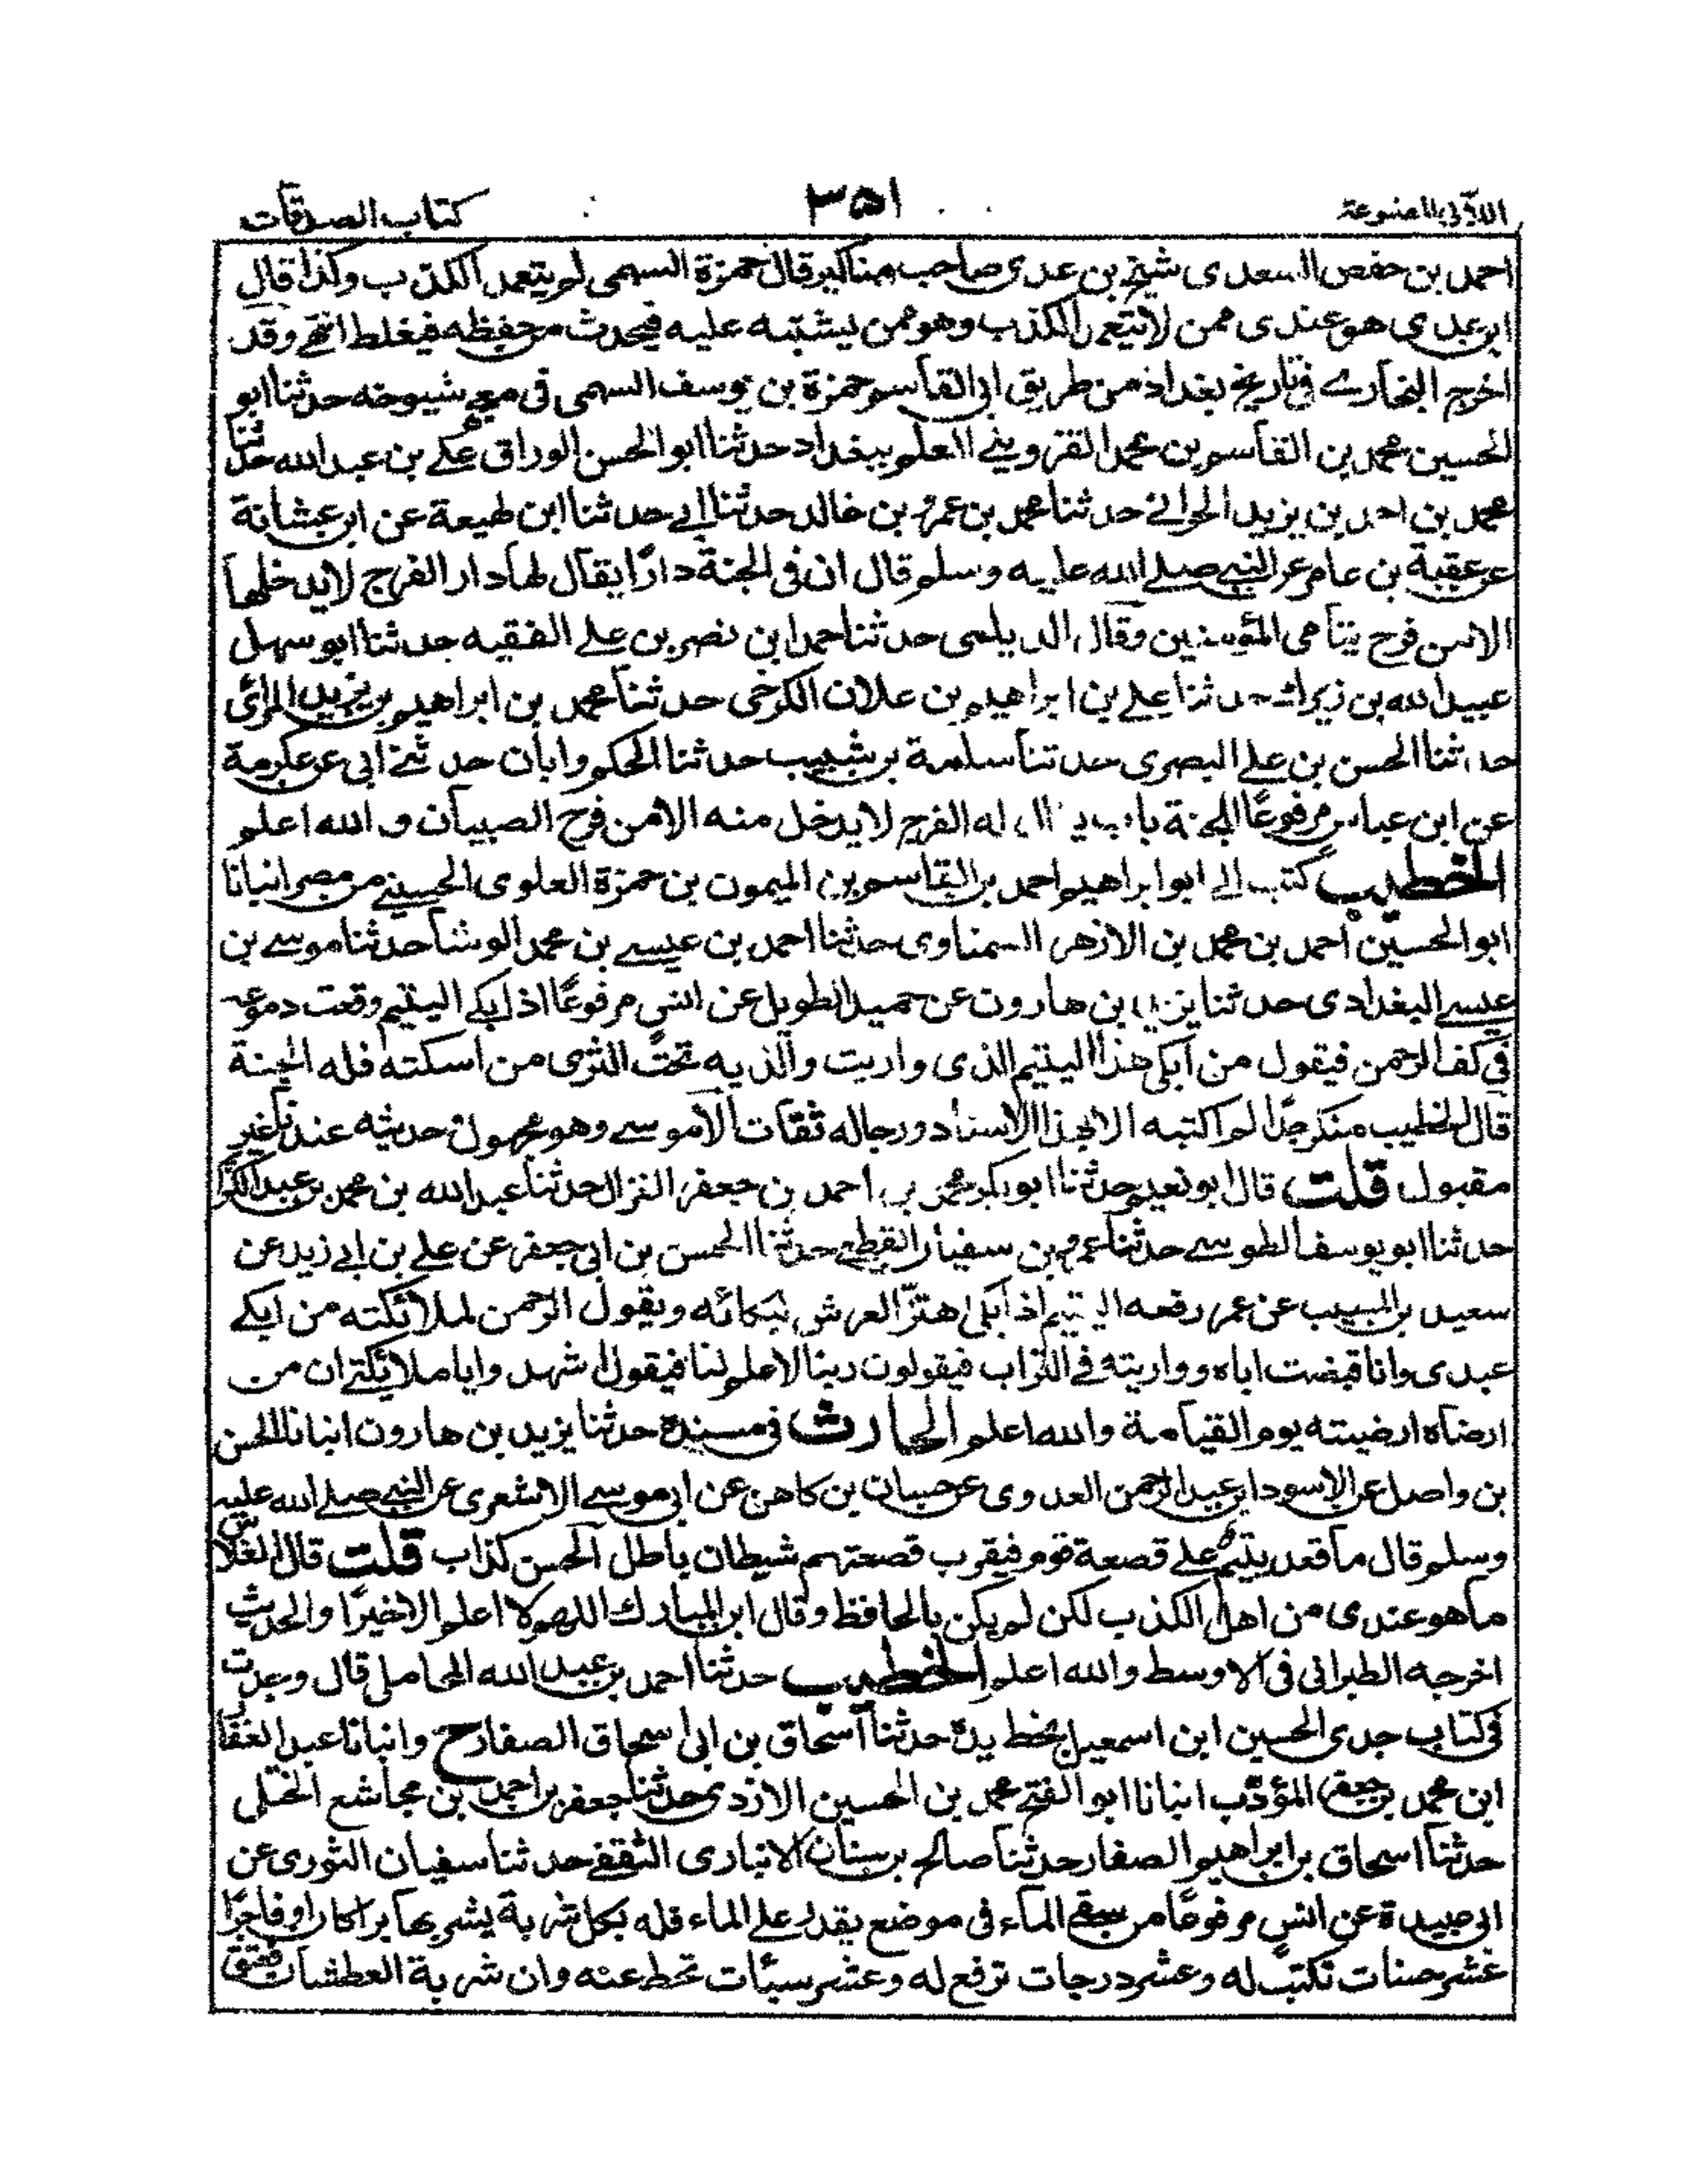 اللآلى المصنوعة ٣٥١ كتاب الصدقات
احمد بن حفص السعدى شيخ بن عدى صاحب مناكير قال حمزة السهمى لم يتعمد الكذب وكذا قال
ابن عدى هو عندى ممن لا يتعمد الكذب وهو ممن يشتبه عليه فيحدث من حفظه فيغلط انتهى وقد
اخرج البخارى فى تاريخ بغداد من طريق ابى القاسم حمزة بن يوسف السهمى فى معجم شيوخه حدثنا ابو
الحسين محمد بن القاسم بن محمد القزوينى المعلم ببغداد حدثنا ابو الحسن الوراق على بن عبد الله حدثنا
محمد بن احمد بن يزيد الحرانى حدثنا محمد بن عمرو بن خالد حدثنا ابى حدثنا ابن لهيعة عن ابن عشانة
عن عقبة بن عامر عن النبى صلى الله عليه وسلم قال ان فى الجنة دارًا يقال لها دار الفرح لا يدخلها
الا من فرح يتامى المؤمنين وقال الديلمى حدثنا حمد ابن نصر بن على الفقيه حدثنا ابو سهل
عبيد الله بن زيرك حدثنا على بن ابراهيم بن علان الكرخى حدثنا محمد بن ابراهيم بن يزيد
حدثنا الحسن بن على البصرى حدثنا سلمة بن شبيب حدثنا الحكم وابان حدثنى ابى عن عكرمة
عن ابن عباس مرفوعًا للجنة باب يقال له الفرح لا يدخل منه الا من فرح الصبيان والله اعلم
الخطيب كتب الى ابو ابراهيم احمد بن القاسم بن الميمون بن حمزة العلوى الحسينى من مصر انبانا
ابو الحسين احمد بن محمد بن الازهر السمناوى حدثنا احمد بن عيسى بن محمد الوشا حدثنا موسى بن
عيسى البغدادى حدثنا يزيد بن هارون عن حميد الطويل عن انس مرفوعًا اذا بكى اليتيم وقعت دموعه
فى كف الرحمن فيقول من ابكى هذا اليتيم الذى واريت والديه تحت الثرى من اسكته فله الجنة
قال الخطيب منكر جدًا لم اكتبه الا بهذا الاسناد ورجاله ثقات الا موسى وهو مجهول حديثه عندنا غير
مقبول قلت قال ابو نعيم حدثنا ابو بكر محمد بن احمد بن جعفر الغزال حدثنا عبد الله بن محمد بن عبد الكر
حدثنا ابو يوسف الطوسى حدثنا عمرو بن سفيان القطعى حدثنا الحسن بن ابى جعفر عن على بن ابى زيد عن
سعيد بن المسيب عن عمر رفعه اليتيم اذا بكى اهتزّ العرش لبكائه ويقول الرحمن لملائكته من ابكى
عبدى وانا قبضت اباه وواريته فى التراب فيقولون ربنا لا علم لنا فيقول اشهدوا يا ملائكتى ان من
ارضاه ارضيته يوم القيامة والله اعلم الحارث فى مسنده حدثنا يزيد بن هارون انبانا الحسن
بن واصل عن الاسود ابن عبد الرحمن العدوى عن حسان بن كاهن عن ابى موسى الاشعرى عن النبى صلى الله عليه
وسلم قال ما قعد يتيم على قصعة قوم فيقرب قصعتهم شيطان باطل الحسن كذاب قلت قال الفلاس
ما هو عندى من اهل الكذب لكن لم يكن بالحافظ وقال ابن المبارك اللهم لا اعلم الا خيرًا والحديث
اخرجه الطبرانى فى الاوسط والله اعلم الخطيب حدثنا احمد بن عبيد الله المحاملى قال وجدت
فى كتاب جدى الحسين ابن اسمعيل بخط يده حدثنا اسحاق بن ابى اسحاق الصفار ح وانبانا عبد الغفار
ابن محمد بن جعفر المؤدّب انبانا ابو الفتح محمد بن الحسين الازدى حدثنا جعفر بن احمد بن مجاشع الختلى
حدثنا اسحاق بن ابراهيم الصفار حدثنا صالح بن سنان الانبارى الثقفى حدثنا سفيان الثورى عن
ابى عبيدة عن انس مرفوعًا من سقى الماء فى موضع يقدر على الماء فله بكل شربة يشربها برا كان او فاجرًا
عشر حسنات تكتب له وعشر درجات ترفع له وعشر سيئات تحط عنه وان شربة العطشان